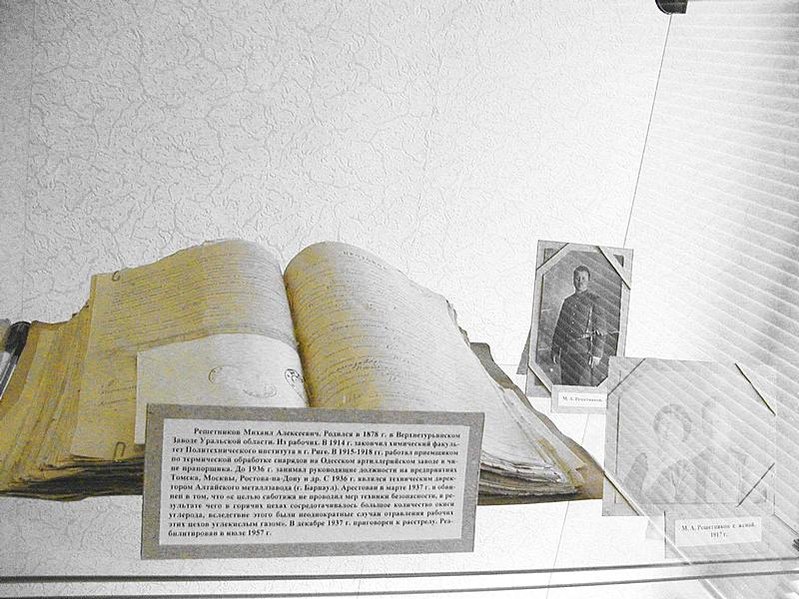 М. А. Решетников.
Решетников Михаил Алексеевич. Родился в 1878 г. в Верхнетурьинском
Заводе Уральской области. Из рабочих. В 1914 г. закончил химический факуль-
тет Политехнического института в г. Риге. В 1915-1918 гг. работал приемщиком
по термической обработке снарядов на Одесском артиллерийском заводе в чи-
не прапорщика. До 1936 г. занимал руководящие должности на предприятиях
Томска, Москвы, Ростова-на-Дону и др. С 1936 г. являлся техническим дирек-
тором Алтайского металлзавода (г. Барнаул). Арестован в марте 1937 г. и обви-
нен в том, что «с целью саботажа не проводил мер техники безопасности, в ре-
зультате чего в горячих цехах сосредотачивалось большое количество окиси
углерода, вследствие этого были неоднократные случаи отравления рабочих
этих цехов углекислым газом». В декабре 1937 г. приговорен к расстрелу. Реа-
билитирован в июле 1957 г.
М. А. Решетников с женой.
1917 г.